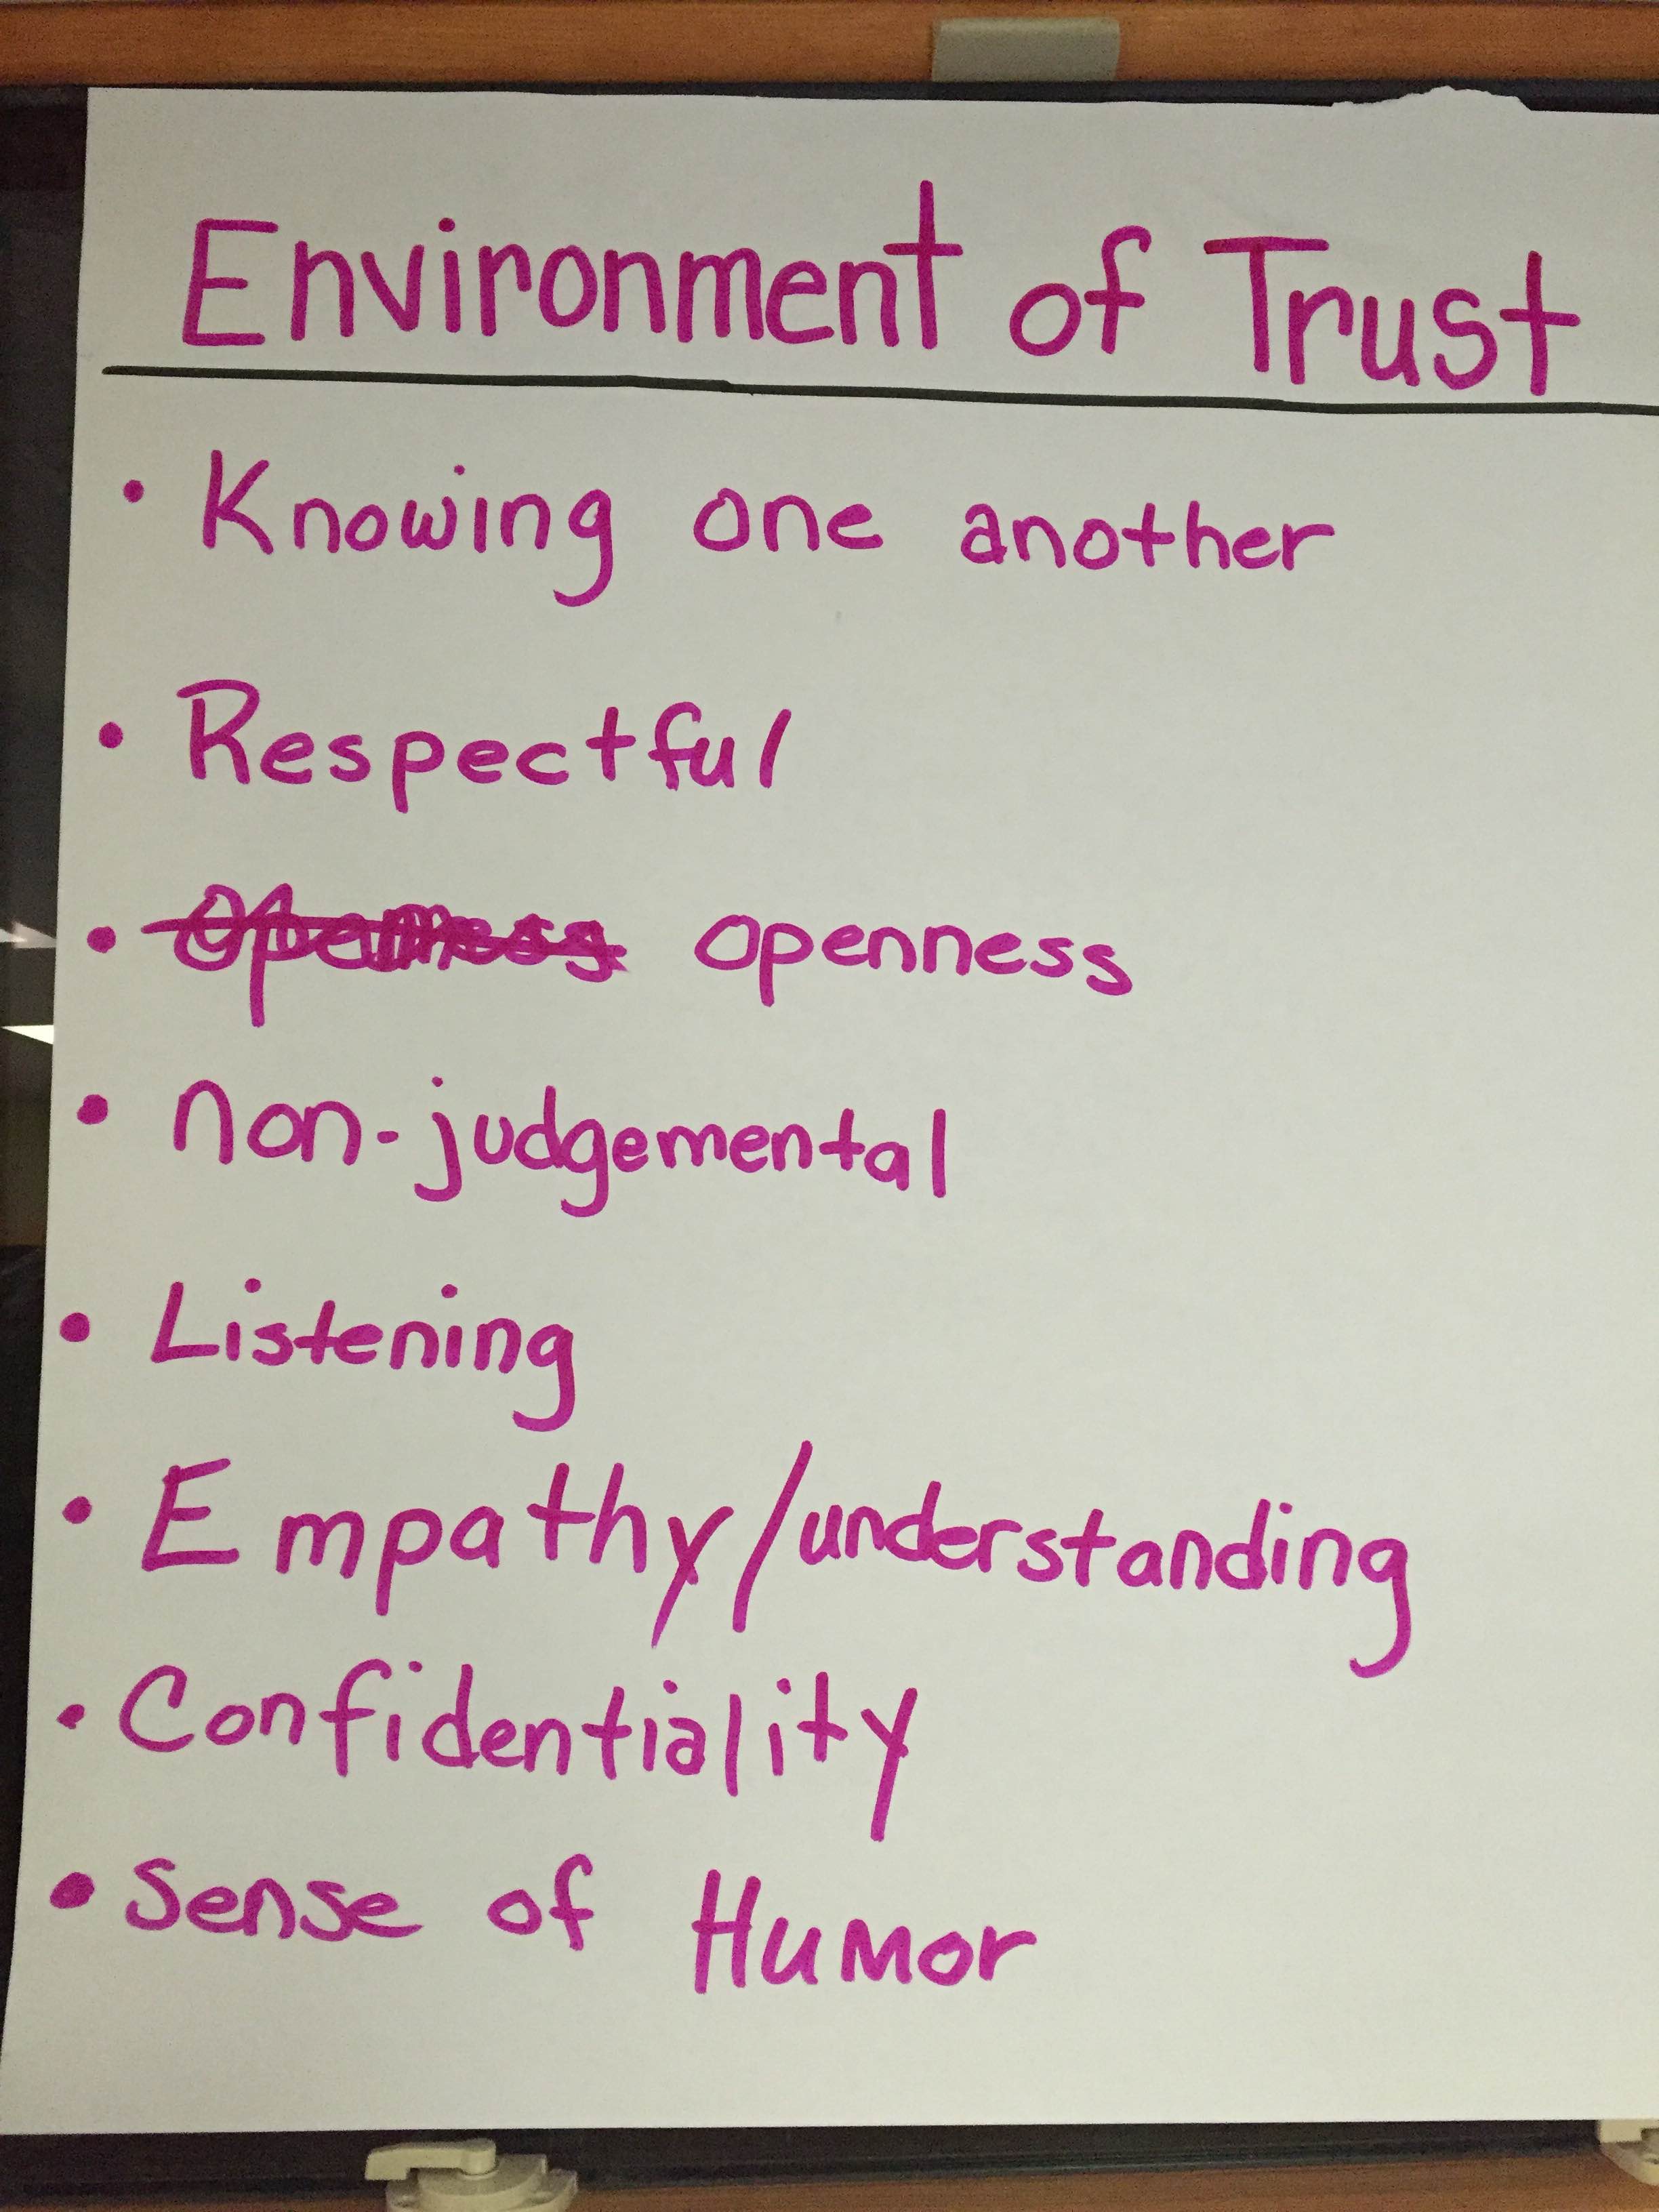 Environment of Trust
• Knowing one another
• Respectful
• openness
• non-judgemental
• Listening
• Empathy/understanding
• Confidentiality
• Sense of Humor